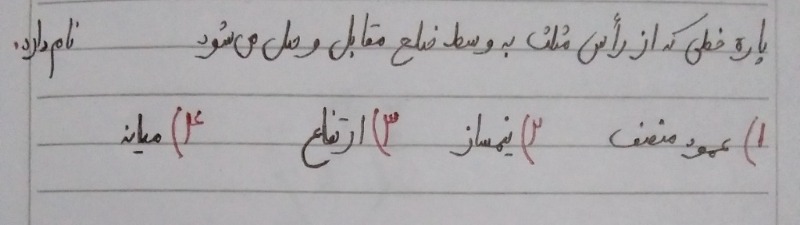 پاره خطی که از رأس مثلث به وسط ضلع مقابل وصل می‌شود نام دارد.
۱) عمود منصف ۲) نیمساز ۳) ارتفاع ۴) میانه